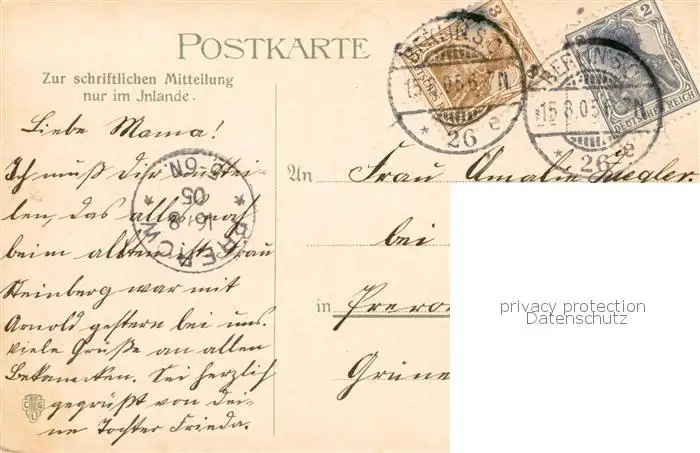 POSTKARTE
Zur schriftlichen Mitteilung
nur im Jnlande.
Liebe Mama!
Ich muß dir mittei-
len, das alles noch
beim alten ist. Frau
Steinberg war mit
Arnold gestern bei uns.
Viele Grüße an allen
Bekannten. Sei herzlich
gegrüßt von dei-
ne Tochter Frieda.
An Frau Amalie Ziegler
bei
in Prero
Grüne
BERLIN S.
15.8.05.6-7N
* 26 e
BERLIN S.
15.8.05.6-7N
* 26 e
3
2
DEUTSCHES REICH
PREROW
16 8
05
5-6N
CGL
privacy protection
Datenschutz